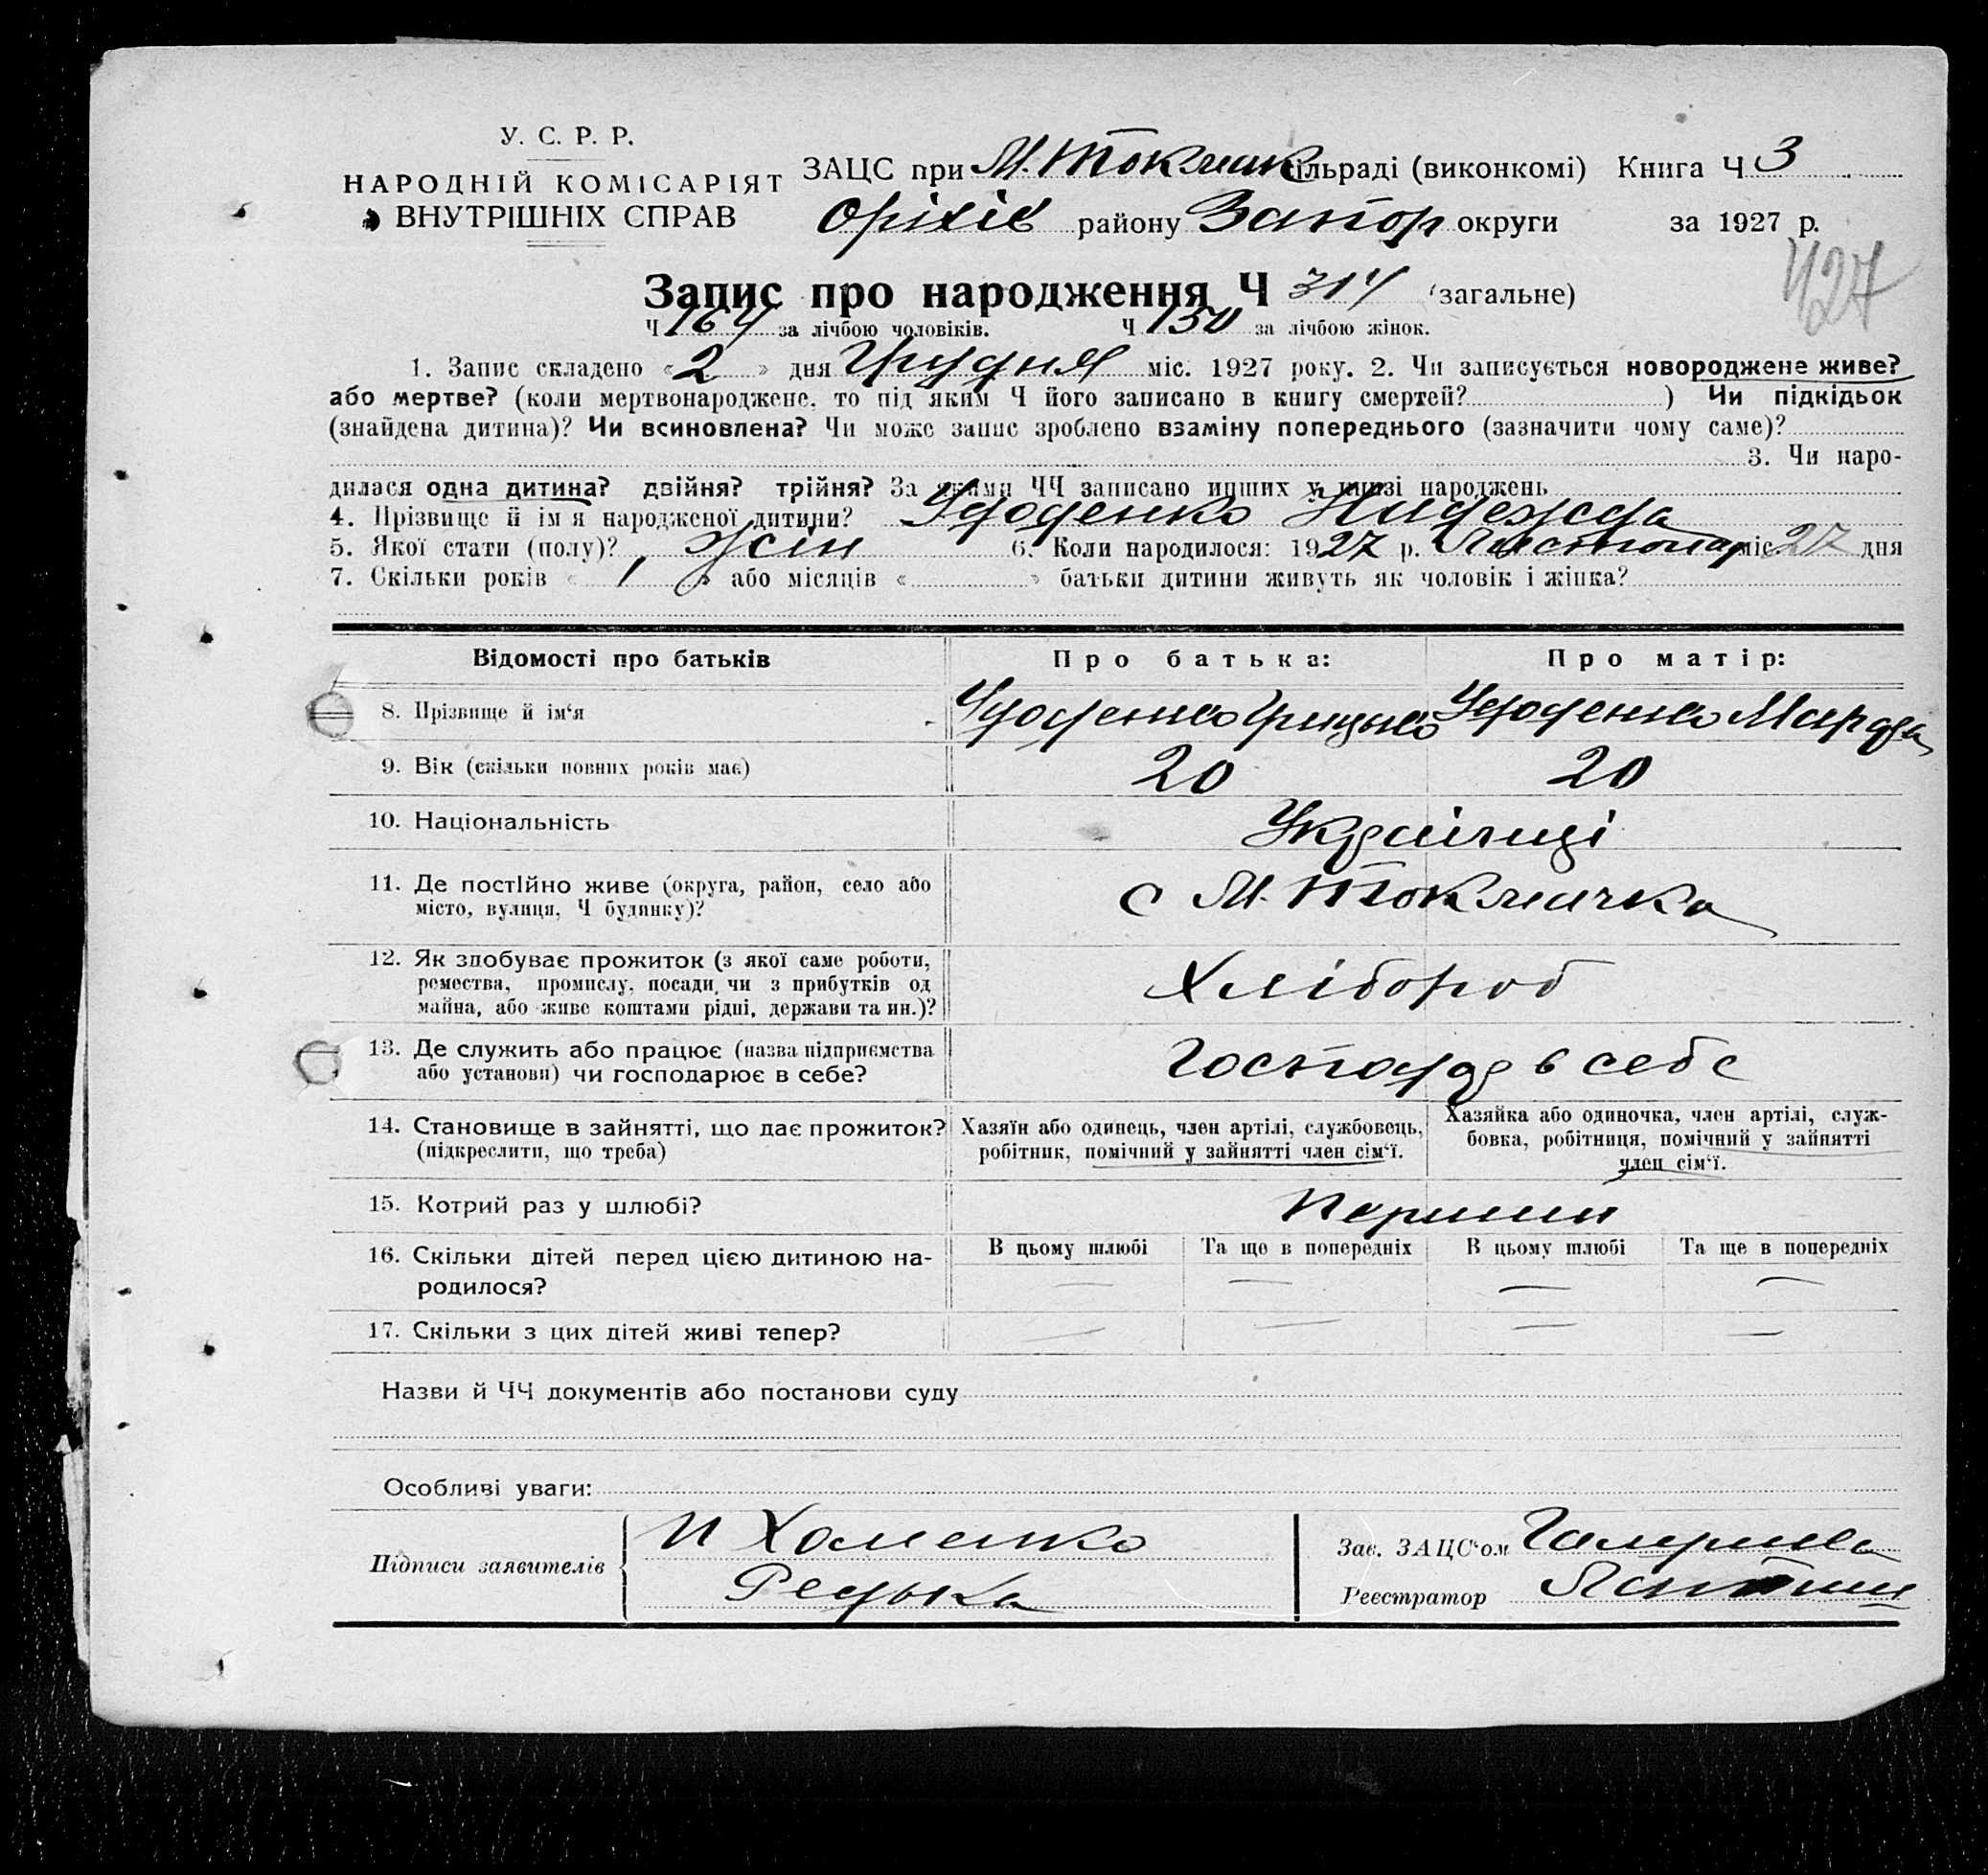 У. С. Р. Р.
НАРОДНІЙ КОМІСАРІЯТ
ВНУТРІШНІХ СПРАВ
ЗАЦС при М. Токмак сільраді (виконкомі) Книга Ч 3
Оріхів району Запор округи за 1927 р.
427
Запис про народження Ч 314 (загальне)
Ч 164 за лічбою чоловіків. Ч 150 за лічбою жінок.
1. Запис складено «2» дня Грудня міс. 1927 року. 2. Чи записується новороджене живе?
або мертве? (коли мертвонароджене, то під яким Ч його записано в книгу смертей? ) Чи підкідьок
(знайдена дитина)? Чи всиновлена? Чи може запис зроблено взаміну попереднього (зазначити чому саме)?
3. Чи наро-
дилася одна дитина? двійня? трійня? За якими ЧЧ записано инших у книзі народжень
4. Прізвище й ім'я народженої дитини? Удоденко Надежда
5. Якої стати (полу)? жін 6. Коли народилося: 1927 р. Листопад міс 27 дня
7. Скільки років «1» або місяців « » батьки дитини живуть як чоловік і жінка?
Відомості про батьків Про батька: Про матір:
8. Прізвище й ім‘я Удоденко Грицько Удоденко Марфа
9. Вік (скільки повних років має) 20 20
10. Національність Українці
11. Де постійно живе (округа, район, село або
місто, вулиця, Ч будинку)? с М. Токмачка
12. Як здобуває прожиток (з якої саме роботи,
ремества, промислу, посади, чи з прибутків од
майна, або живе коштами рідні, держави та ин.)? Хлібороб
13. Де служить або працює (назва підприємства
або установи) чи господарює в себе? Господар в себе
14. Становище в зайнятті, що дає прожиток?
(підкреслити, що треба)
Хазяїн або одинець, член артілі, службовець,
робітник, помічний у зайнятті член сім‘ї.
Хазяйка або одиночка, член артілі, служ-
бовка, робітниця, помічний у зайнятті
член сім‘ї.
15. Котрий раз у шлюбі? Перший
16. Скільки дітей перед цією дитиною на-
родилося?
В цьому шлюбі Та ще в попередніх В цьому шлюбі Та ще в попередніх
— — — —
17. Скільки з цих дітей живі тепер? — — — —
Назви й ЧЧ документів або постанови суду
Особливі уваги:
Підписи заявителів И Хоменко
Редька
Зав. ЗАЦС‘ом
Реєстратор